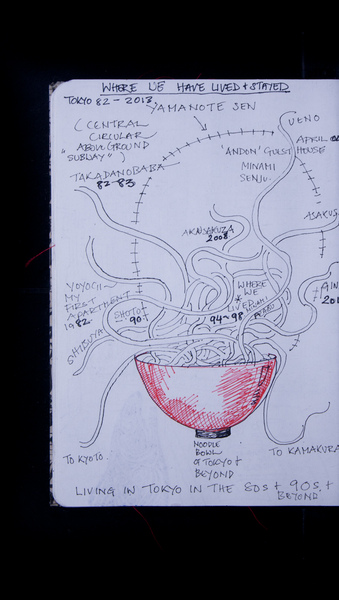 WHERE WE HAVE LIVED + STAYED
TOKYO 82 - 2013
YAMANOTE SEN
(CENTRAL
CIRCULAR
ABOVE GROUND
SUBWAY")
UENO
APRIL
'ANDON' GUEST HOUSE
MINAMI
SENJU
TAKADANOBABA
82-83
ASAKUS
AKASAKUZA
2008
YOYOCHI
MY
FIRST
APARTMENT
1982
SHOTO
90
WHERE
WE
LIVED
94-98
AIN
201
SHIBUYA
TO KYOTO
NOODLE
BOWL
OF TOKYO +
BEYOND
TO KAMAKURA
LIVING IN TOKYO IN THE 80S + 90S. +
BEYOND